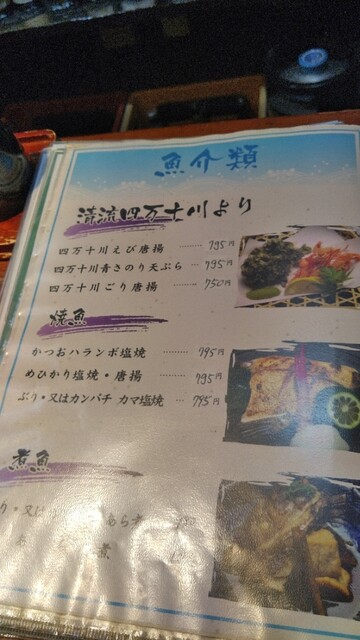 魚介類
清流四万十川より
四万十川えび唐揚 ……… 795円
四万十川青さのり天ぷら … 995円
四万十川ごり唐揚 ……… 750円
焼魚
かつおハランボ塩焼 ……… 795円
めひかり塩焼・唐揚 ……… 795円
ぶり・又はカンパチ カマ塩焼 … 795円
煮魚
り・又は あら煮
煮